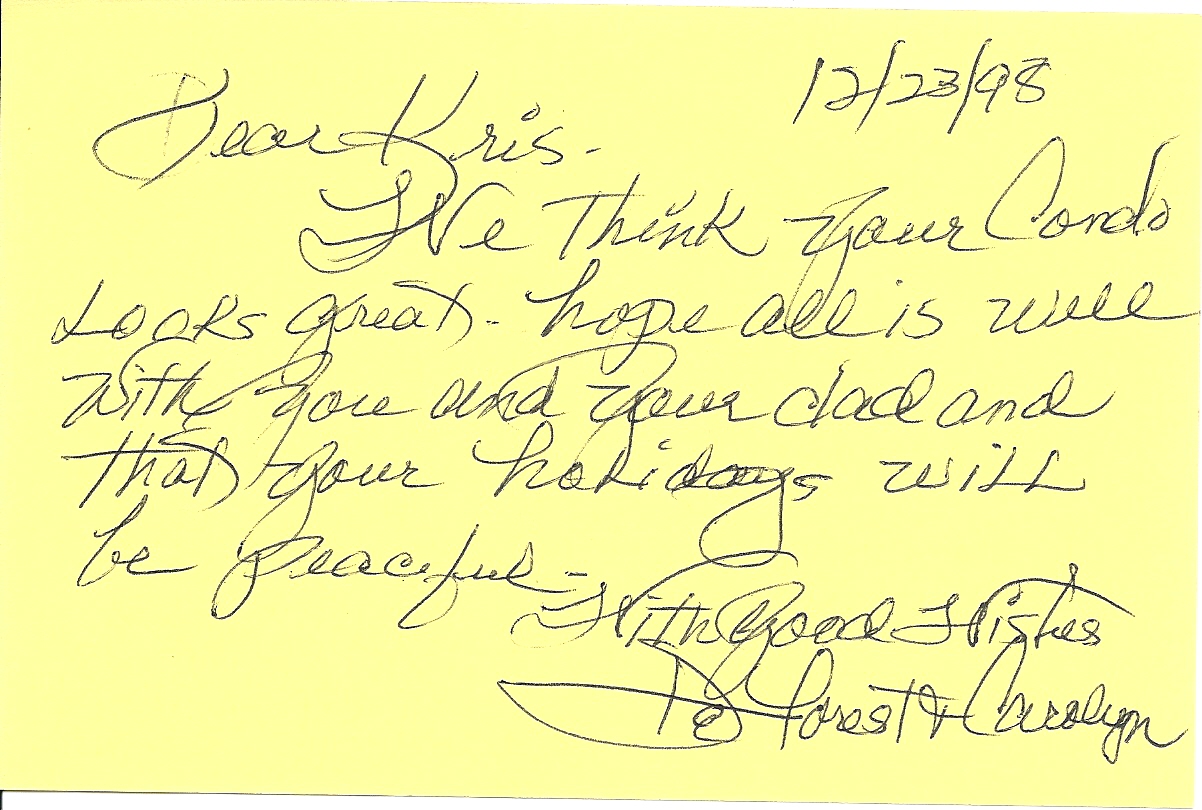 12/23/98
Dear Kris-
We think your Condo
Looks great- hope all is well
with you and your dad and
that your holidays will
be peaceful-
With Good Wishes
DeForest & Carolyn